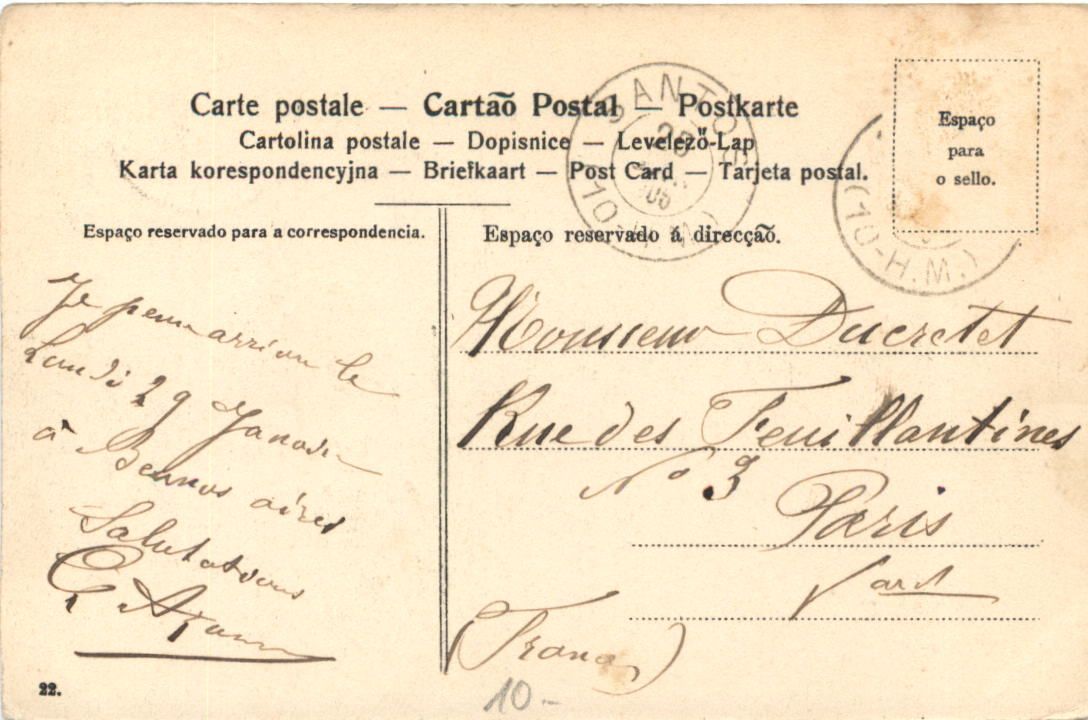 Carte postale — Cartaõ Postal — Postkarte
Cartolina postale — Dopisnice — Levelező-Lap
Karta korespondencyjna — Briefkaart — Post Card — Tarjeta postal.
SANTOS
(10-H.M.)
Espaço
para
o sello.
(10-H.M.)
Espaço reservado para a correspondencia.
Espaço reservado á direcçaõ.
Je pense arriver le
Lundi 29
à Buenos aires
Salutations
Monsieur Ducretet
Rue des Feuillantines
No 3
Paris
(France)
22.
10-